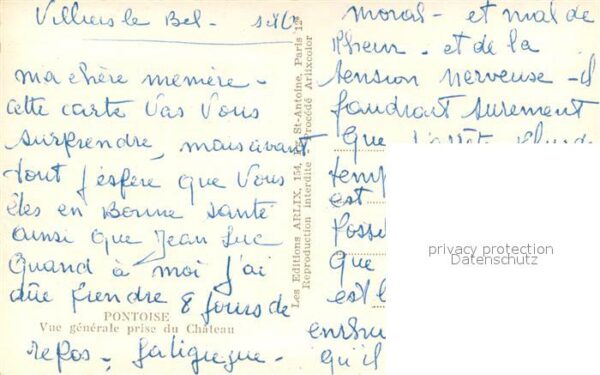 Villiers le Bel -
ma chère memère -
cette carte Vas Vous
surprendre, mais avant
tout j'espère que Vous
êtes en Bonne santé
ainsi que Jean Luc
Quand à moi j'ai
dûe prendre 8 jours de
repos - fatigue -
PONTOISE
Vue générale prise du Château
Les Editions ARLIX, 154, St-Antoine, Paris 12e
Reproduction interdite - Procédé Arlixcolor
moral - et mal de
Rheur - et de la
tension nerveuse - il
faudrait surement
Que
temp
est
Possi
Que
est
qu'il
privacy protection
Datenschutz